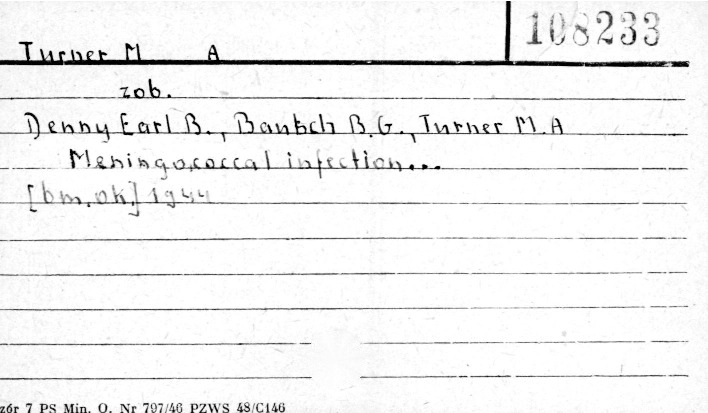 108233
Turner M A
zob.
Denny Earl B., Bautsch B.G., Turner M.A
Meningococcal infection...
[bm.ok.] 1944
zór 7 PS Min. O. Nr 797/46 PZWS 48/C146